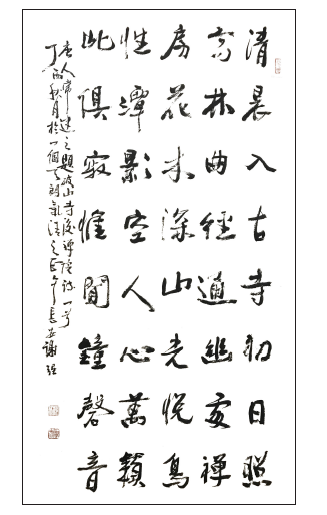 清晨入古寺初日照
高林曲徑通幽處禪
房花木深山光悅鳥
性潭影空人心萬籟
此俱寂惟聞鐘磬音
唐人常建之題破山寺後禪院詩一首
丁酉秋月於一個天朗氣清之日午長安謝